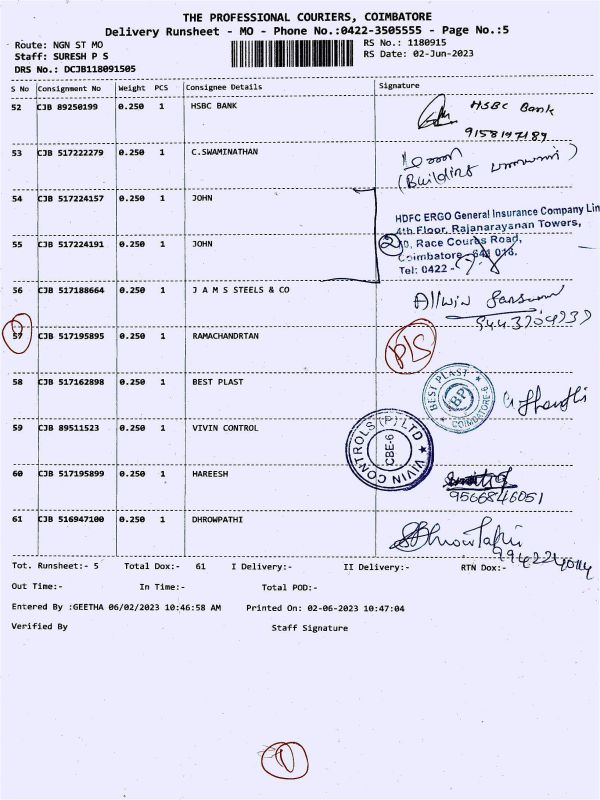 THE PROFESSIONAL COURIERS, COIMBATORE
Delivery Runsheet - MO - Phone No.:0422-3505555 - Page No.:5
Route: NGN ST MO
RS No.: 1180915
Staff: SURESH P S
RS Date: 02-Jun-2023
DRS No.: DCJB118091505
S No Consignment No Weight PCS Consignee Details Signature
52 CJB 89250199 0.250 1 HSBC BANK
HSBC Bank
53 CJB 517222279 0.250 1 C.SWAMINATHAN
(Building
54 CJB 517224157 0.250 1 JOHN
HDFC ERGO General Insurance Company Lim
4th Floor, Rajanarayanan Towers,
55 CJB 517224191 0.250 1 JOHN
2
Race Course Road,
Coimbatore - 641 018.
Tel: 0422 -
56 CJB 517188664 0.250 1 J A M S STEELS & CO
Allwin
57 CJB 517195895 0.250 1 RAMACHANDRTAN
P/S
58 CJB 517162898 0.250 1 BEST PLAST
BEST PLAST
BP
COIMBATORE-9
59 CJB 89511523 0.250 1 VIVIN CONTROL
VIVIN CONTROLS (P) LTD
CBE-6
60 CJB 517195899 0.250 1 HAREESH
9566846051
61 CJB 516947100 0.250 1 DHROWPATHI
Tot. Runsheet:- 5 Total Dox:- 61 I Delivery:- II Delivery:- RTN Dox:-
Out Time:- In Time:- Total POD:-
Entered By :GEETHA 06/02/2023 10:46:58 AM Printed On: 02-06-2023 10:47:04
Verified By Staff Signature
1